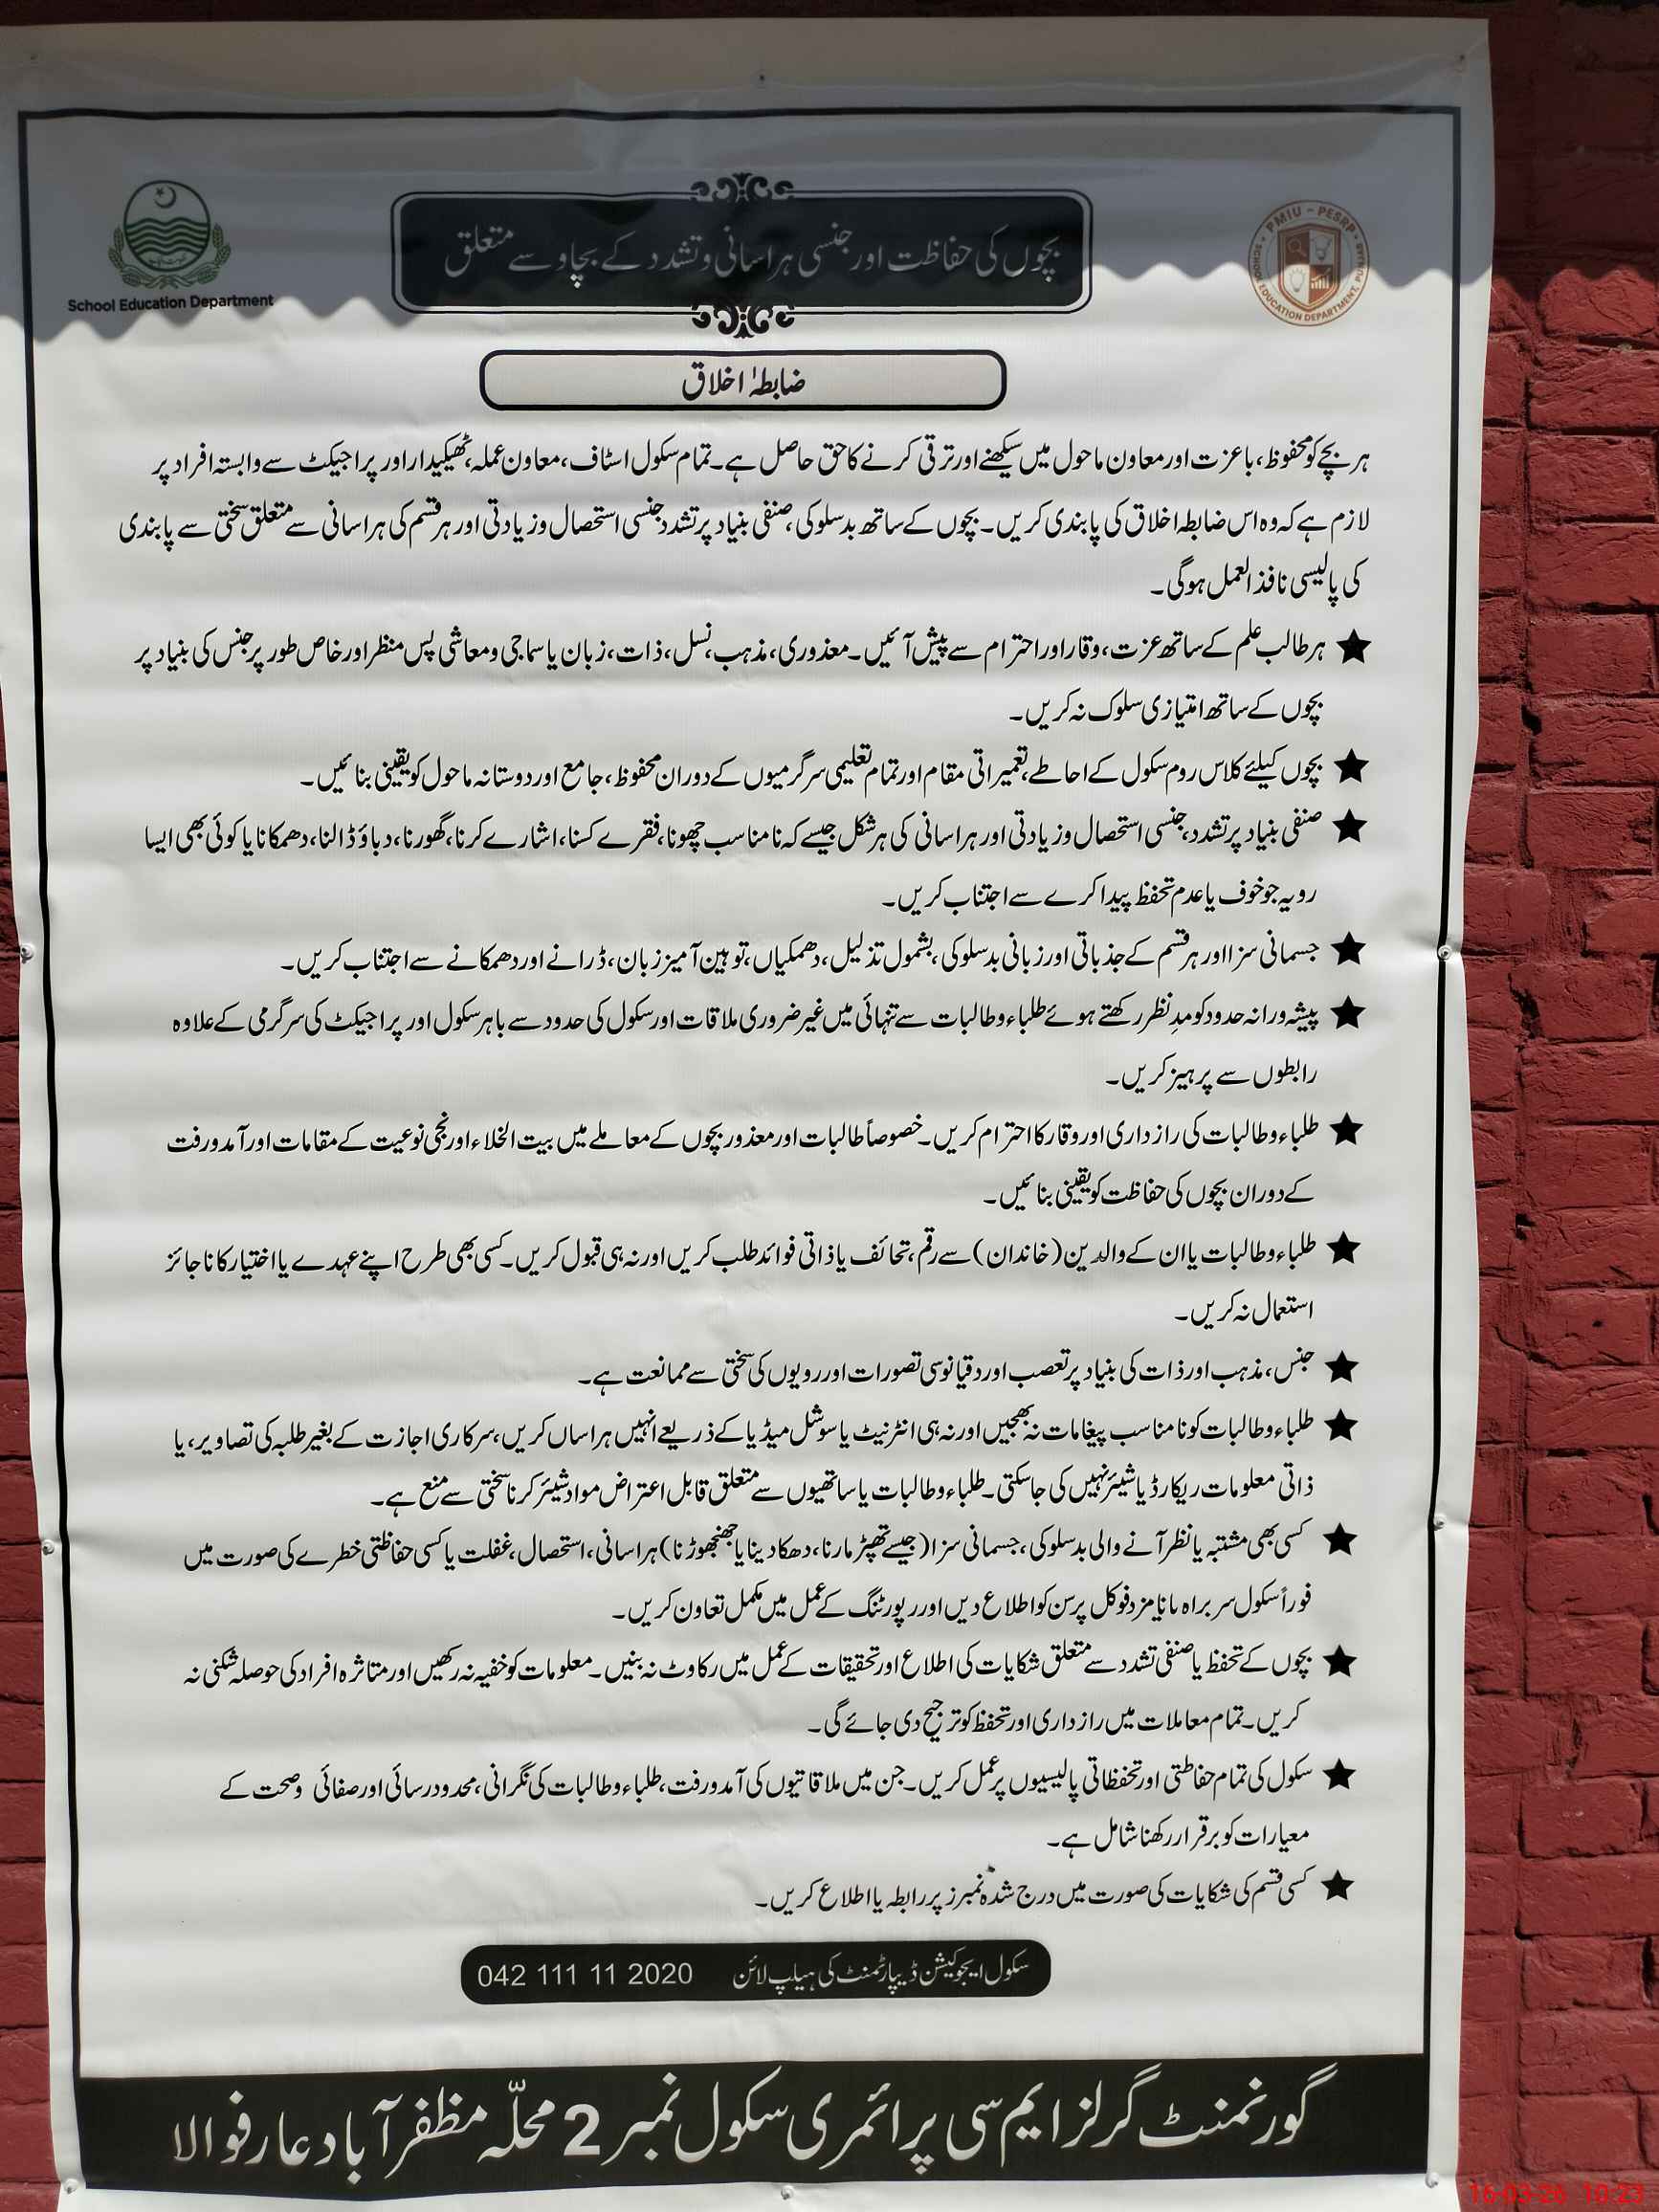 School Education Department
PMIU - PESRP
SCHOOL EDUCATION DEPARTMENT, PUNJAB
بچوں کی حفاظت اور جنسی ہراسانی و تشدد کے بچاو سے متعلق
ضابطۂ اخلاق
ہر بچے کو محفوظ، باعزت اور معاون ماحول میں سیکھنے اور ترقی کرنے کا حق حاصل ہے۔ تمام سکول اسٹاف، معاون عملہ، ٹھیکیدار اور پراجیکٹ سے وابستہ افراد پر
لازم ہے کہ وہ اس ضابطہ اخلاق کی پابندی کریں۔ بچوں کے ساتھ بدسلوکی، صنفی بنیاد پر تشدد جنسی استحصال و زیادتی اور ہر قسم کی ہراسانی سے متعلق سختی سے پابندی
کی پالیسی نافذ العمل ہوگی۔
★ ہر طالب علم کے ساتھ عزت، وقار اور احترام سے پیش آئیں۔ معذوری، مذہب، نسل، ذات، زبان یا سماجی و معاشی پس منظر اور خاص طور پر جنس کی بنیاد پر
بچوں کے ساتھ امتیازی سلوک نہ کریں۔
★ بچوں کیلئے کلاس روم سکول کے احاطے، تعمیراتی مقام اور تمام تعلیمی سرگرمیوں کے دوران محفوظ، جامع اور دوستانہ ماحول کو یقینی بنائیں۔
★ صنفی بنیاد پر تشدد، جنسی استحصال و زیادتی اور ہراسانی کی ہر شکل جیسے کہ نامناسب چھونا، فقرے کسنا، اشارے کرنا، گھورنا، دباؤ ڈالنا، دھمکانا یا کوئی بھی ایسا
رویہ جو خوف یا عدم تحفظ پیدا کرے سے اجتناب کریں۔
★ جسمانی سزا اور ہر قسم کے جذباتی اور زبانی بدسلوکی، بشمول تذلیل، دھمکیاں، توہین آمیز زبان، ڈرانے اور دھمکانے سے اجتناب کریں۔
★ پیشہ ورانہ حدود کو مدِنظر رکھتے ہوئے طلباء و طالبات سے تنہائی میں غیر ضروری ملاقات اور سکول کی حدود سے باہر سکول اور پراجیکٹ کی سرگرمی کے علاوہ
رابطوں سے پرہیز کریں۔
★ طلباء و طالبات کی رازداری اور وقار کا احترام کریں۔ خصوصاً طالبات اور معذور بچوں کے معاملے میں بیت الخلاء اور نجی نوعیت کے مقامات اور آمدورفت
کے دوران بچوں کی حفاظت کو یقینی بنائیں۔
★ طلباء و طالبات یا ان کے والدین (خاندان) سے رقم، تحائف یا ذاتی فوائد طلب کریں اور نہ ہی قبول کریں۔ کسی بھی طرح اپنے عہدے یا اختیار کا ناجائز
استعمال نہ کریں۔
★ جنس، مذہب اور ذات کی بنیاد پر تعصب اور دقیانوسی تصورات اور رویوں کی سختی سے ممانعت ہے۔
★ طلباء و طالبات کو نامناسب پیغامات نہ بھیجیں اور نہ ہی انٹرنیٹ یا سوشل میڈیا کے ذریعے انہیں ہراساں کریں، سرکاری اجازت کے بغیر طلبہ کی تصاویر، یا
ذاتی معلومات ریکارڈ یا شیئر نہیں کی جاسکتی۔ طلباء و طالبات یا ساتھیوں سے متعلق قابل اعتراض مواد شیئر کرنا سختی سے منع ہے۔
★ کسی بھی مشتبہ یا نظر آنے والی بدسلوکی، جسمانی سزا (جیسے تھپڑ مارنا، دھکا دینا یا جھنجھوڑنا) ہراسانی، استحصال، غفلت یا کسی حفاظتی خطرے کی صورت میں
فوراً سکول سربراہ نامزد فوکل پرسن کو اطلاع دیں اور رپورٹنگ کے عمل میں مکمل تعاون کریں۔
★ بچوں کے تحفظ یا صنفی تشدد سے متعلق شکایات کی اطلاع اور تحقیقات کے عمل میں رکاوٹ نہ بنیں۔ معلومات کو خفیہ نہ رکھیں اور متاثرہ افراد کی حوصلہ شکنی نہ
کریں۔ تمام معاملات میں رازداری اور تحفظ کو ترجیح دی جائے گی۔
★ سکول کی تمام حفاظتی اور تحفظاتی پالیسیوں پر عمل کریں۔ جن میں ملاقاتیوں کی آمدورفت، طلباء و طالبات کی نگرانی، محدود رسائی اور صفائی و صحت کے
معیارات کو برقرار رکھنا شامل ہے۔
★ کسی قسم کی شکایات کی صورت میں درج شدہ نمبرز پر رابطہ یا اطلاع کریں۔
سکول ایجوکیشن ڈیپارٹمنٹ کی ہیلپ لائن 042 111 11 2020
گورنمنٹ گرلز ایم سی پرائمری سکول نمبر 2 محلّہ مظفر آباد عارفوالا
16-03-26 10:23